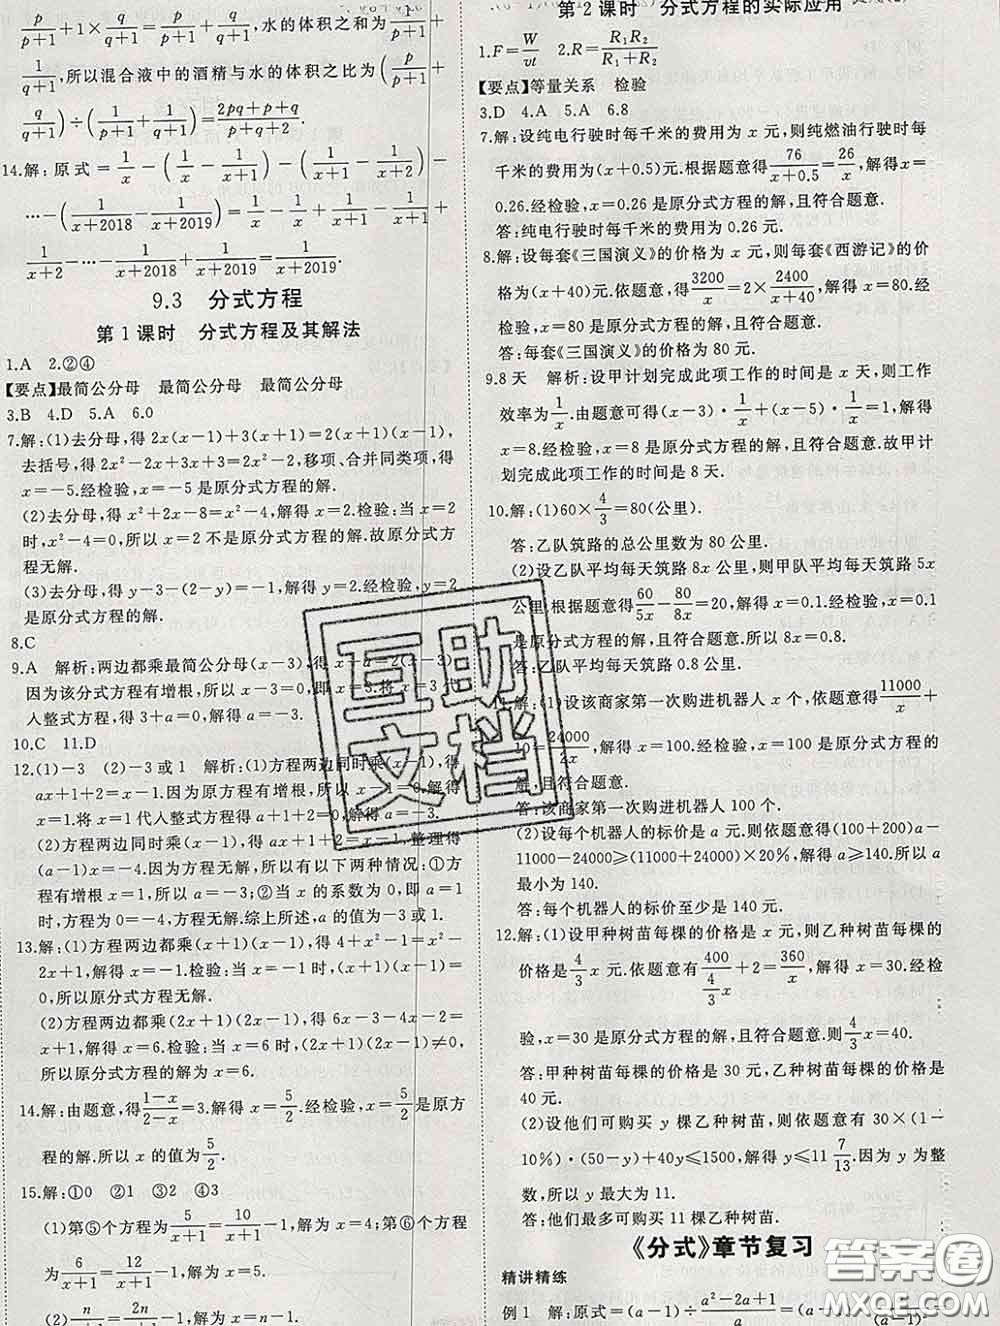 p/(p+1)+1×q/(q+1)=p/(p+1)+q/(q+1),水的体积之和为1/(p+1)+
1/(q+1),所以混合液中的酒精与水的体积之比为(p/(p+1)+
q/(q+1))÷(1/(p+1)+1/(q+1))=(2pq+p+q)/(p+q+2).
14.解:原式=1/x-(1/x-1/(x+1))-(1/(x+1)-1/(x+2))-
…-(1/(x+2018)-1/(x+2019))=1/x-1/x+1/(x+1)-1/(x+1)+
1/(x+2)-…-1/(x+2018)+1/(x+2019)=1/(x+2019).
9.3 分式方程
第1课时 分式方程及其解法
1.A 2.②④
【要点】最简公分母 最简公分母 最简公分母
3.B 4.D 5.A 6.0
7.解:(1)去分母,得2x(x-1)+3(x+1)=2(x+1)(x-1),
去括号,得2x²-2x+3x+3=2x²-2,移项、合并同类项,得
x=-5.经检验,x=-5是原分式方程的解.
(2)去分母,得x²+2x-8=x²-4,解得x=2.检验:当x=2
时,x²-4=0,所以x=2不是原分式方程的解.故原分式方
程无解.
(3)去分母,得y-3-(2-y)=-1,解得y=2.经检验,y=2
是原分式方程的解.
8.C
9.A 解析:两边都乘最简公分母(x-3),得x=2(x-3)
因为该分式方程有增根,所以x-3=0,即x=3.将x=3代
入整式方程,得3+a=0,解得a=-3.
10.C 11.D
12.(1)-3 (2)-3或1 解析:(1)方程两边同时乘(x-1),得
ax+1+2=x-1.因为原方程有增根,所以x-1=0.解得
x=1.将x=1代入整式方程得a+1+2=0,解得a=-3.
(2)方程两边同时乘(x-1),得ax+1+2=x-1.整理得
(a-1)x=-4.因为方程无解,所以有以下两种情况:①方
程有增根x=1,所以a=-3;②当x的系数为0,即a=1
时,方程为0=-4,方程无解.综上所述,a的值为-3或1.
13.解:(1)方程两边都乘(x+1)(x-1),得4+x²-1=x²-
2x+1,解得x=-1.检验:当x=-1时,(x+1)(x-1)=
0,所以原分式方程无解.
(2)方程两边都乘(2x+1)(2x-1),得6x-3-4x-2=
x+1,解得x=6.检验:当x=6时,(2x+1)(2x-1)≠0,
所以原分式方程的解为x=6.
14.解:由题意,得(1-x)/(2-x)=3.解得x=5/2.经检验,x=5/2是原方
程的解.所以x的值为5/2.
15.解:①0 ②1 ③2 ④3
(1)第⑤个方程为5/(x+1)=10/(x+1)-1,解为x=4.第⑥个方程
为6/(x+1)=12/(x+1)-1,解为x=5.
第2课时 分式方程的实际应用
1.F=W/vt 2.R=R₁R₂/(R₁+R₂)
【要点】等量关系 检验
3.D 4.A 5.A 6.8
7.解:设纯电行驶时每千米的费用为x元,则纯燃油行驶时每
千米的费用为(x+0.5)元.根据题意得76/(x+0.5)=26/x,解得x=
0.26.经检验,x=0.26是原分式方程的解,且符合题意.
答:纯电行驶时每千米的费用为0.26元.
8.解:设每套《三国演义》的价格为x元,则每套《西游记》的价
格为(x+40)元.依题意,得3200/x=2×2400/(x+40),解得x=80.经
检验,x=80是原分式方程的解,且符合题意.
答:每套《三国演义》的价格为80元.
9.8天 解析:设甲计划完成此项工作的时间是x天,则工作
效率为1/x.由题意可得(x-3)·1/x+(x-5)·1/x=1,解得
x=8.经检验,x=8是原分式方程的解,且符合题意.故甲计
划完成此项工作的时间是8天.
10.解:(1)60×4/3=80(公里).
答:乙队筑路的总公里数为80公里.
(2)设乙队平均每天筑路8x公里,则甲队平均每天筑路5x
公里,根据题意得60/5x-80/8x=20,解得x=0.1.经检验,x=0.1
是原分式方程的解,且符合题意.所以8x=0.8.
答:乙队平均每天筑路0.8公里.
解:(1)设该商家第一次购进机器人x个,依题意得11000/x+
10=24000/2x,解得x=100.经检验,x=100是原分式方程的
解,且符合题意.
答:该商家第一次购进机器人100个.
(2)设每个机器人的标价是a元.则依题意得(100+200)a-
11000-24000≥(11000+24000)×20%,解得a≥140.所以a
最小为140.
答:每个机器人的标价至少是140元.
12.解:(1)设甲种树苗每棵的价格是x元,则乙种树苗每棵的
价格是4/3x元.依题意有400/(4/3x)+2=360/x,解得x=30.经检
验,x=30是原分式方程的解,且符合题意.则4/3x=40.
答:甲种树苗每棵的价格是30元,乙种树苗每棵的价格是
40元.
(2)设他们可以购买y棵乙种树苗,则依题意有30×(1-
10%)·(50-y)+40y≤1500,解得y≤11 7/13.因为y为整
数,所以y最大为11.
答:他们最多可购买11棵乙种树苗.
《分式》章节复习
精讲精练
互助
文档
答案圈
MXQE.COM